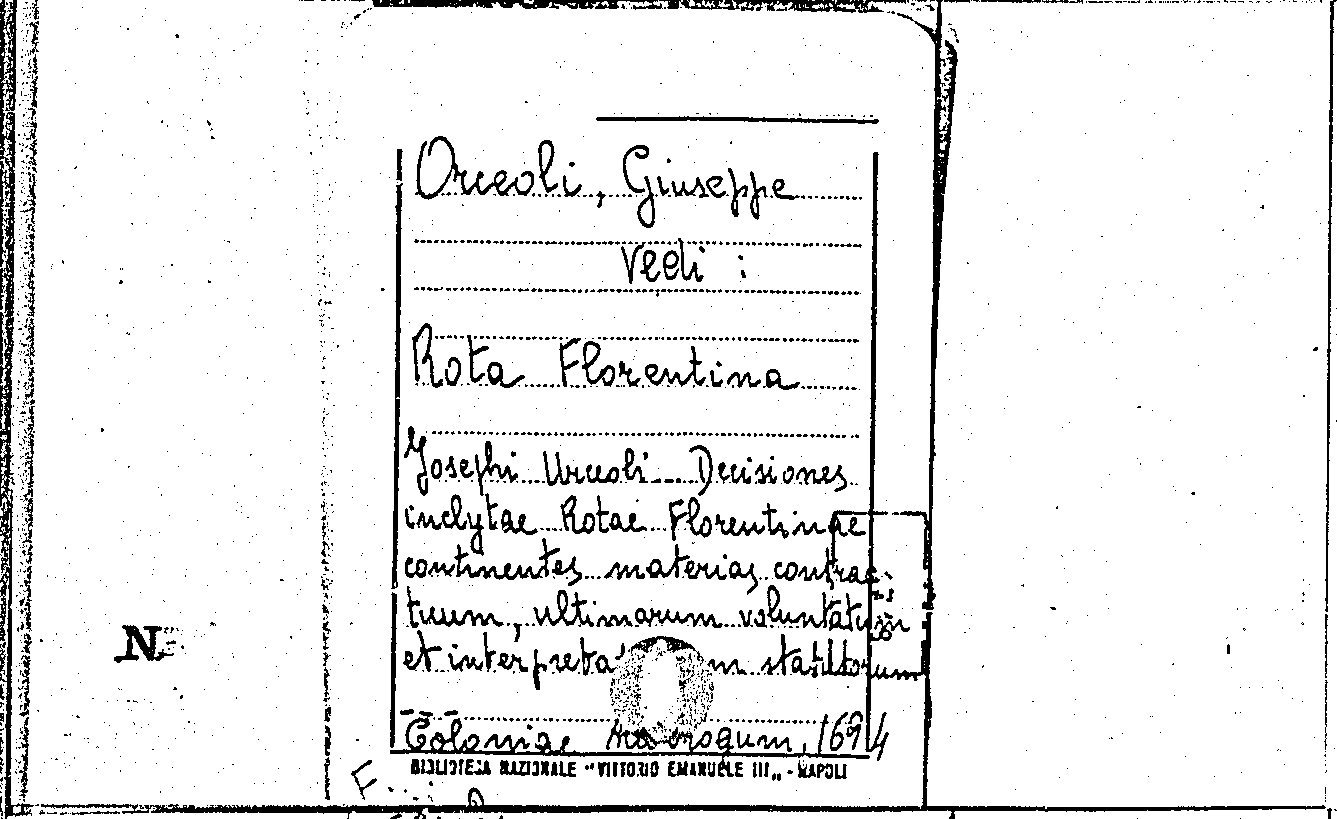 Orceoli, Giuseppe
Vedi :
Rota Florentina
Josephi Urceoli... Decisiones
inclytae Rotae Florentinae
continentes materias contrac-
tuum, ultimarum voluntatum
et interpreta m statutorum
Coloniae 1694
BIBLIOTECA NAZIONALE "VITTORIO EMANUELE III„ - NAPOLI
N